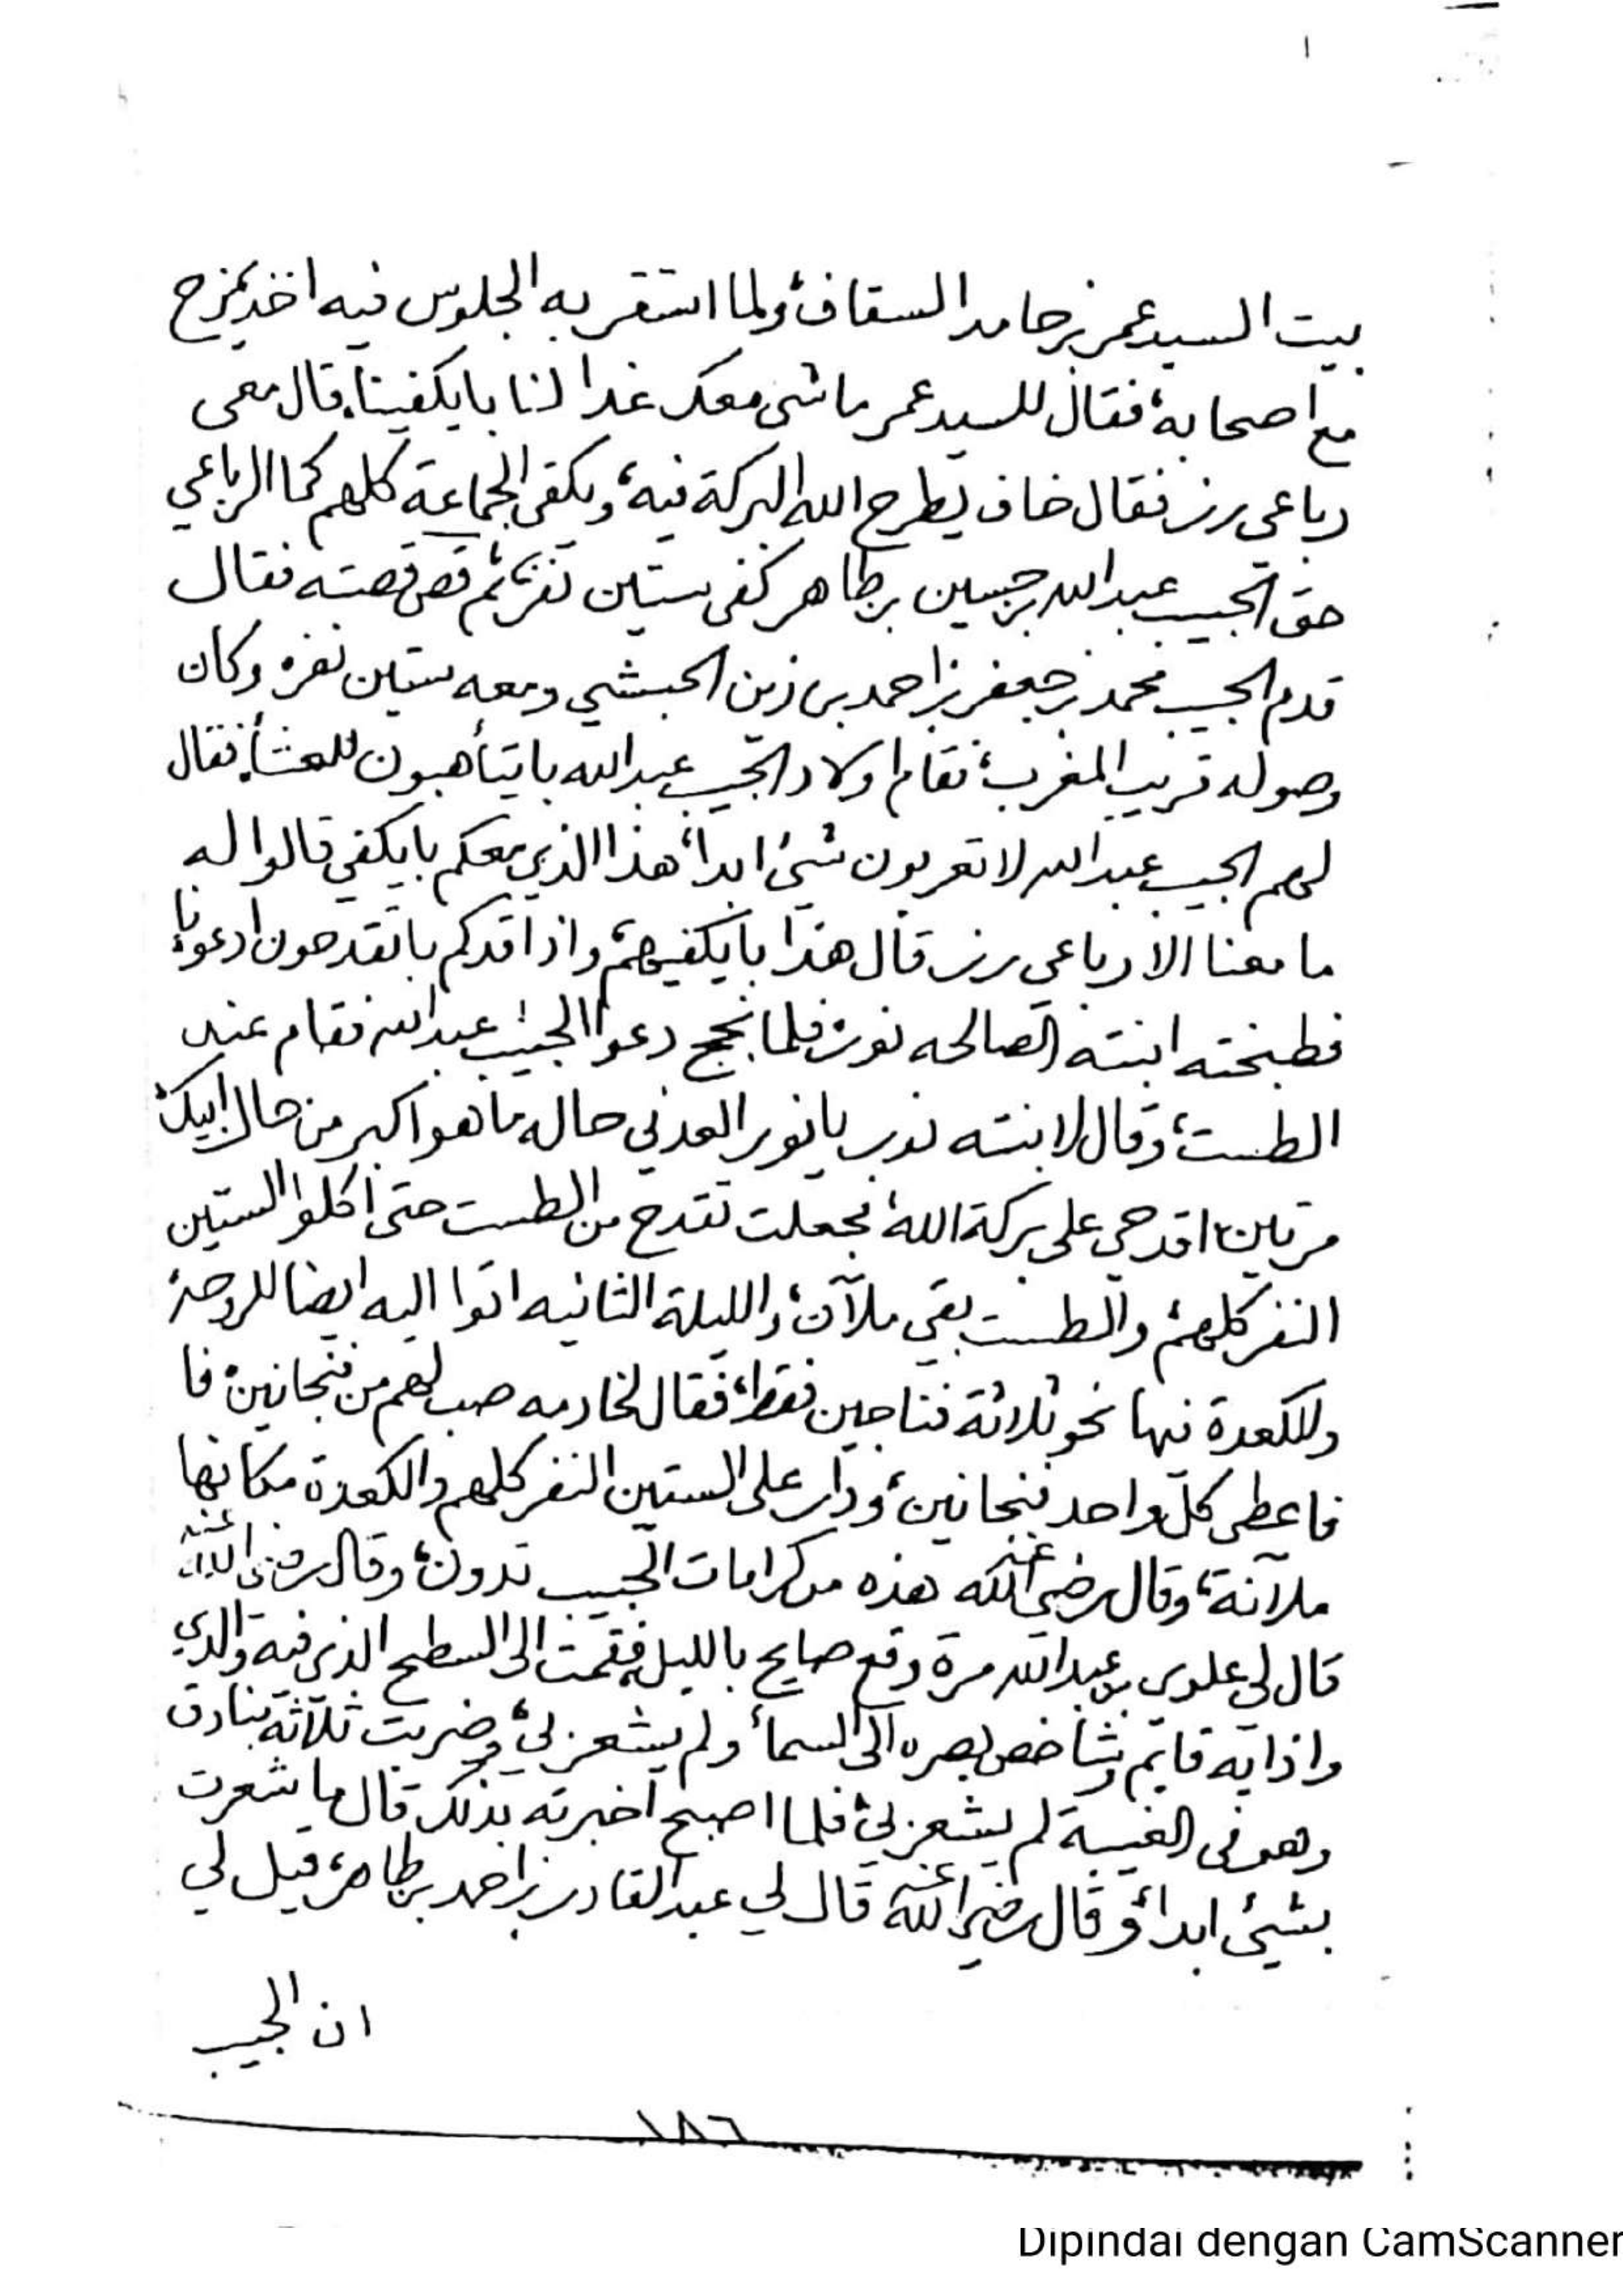 بيت السيد عمر بن حامد السقاف، ولما استقر به الجلوس فيه اخذ يمزح
مع اصحابه، فقال للسيد عمر ماشي معك غدا لنا بايكفينا، قال معي
رباعي رز فقال خاف يطرح الله البركة فيه، ويكفي الجماعة كلهم كما الرباعي
حق الحبيب عبدالله بن حسين بن طاهر كفى ستين نفر، ثم قص قصته فقال
قدم الحبيب محمد بن جعفر بن احمد بن زين الحبشي ومعه ستين نفره وكان
وصوله قريب المغرب، فقام اولاد الحبيب عبدالله بايتأهبون للعشأ، فقال
لهم الحبيب عبدالله لا تعربون شيئ ابدا، هذا الذي معكم بايكفي قالوا له
ما معنا الا رباعي رز قال هذا بايكفيهم، واذا قدكم باتقدحون ادعونا
فطبخته ابنته الصالحه نور، فلما نجح دعوا الحبيب عبدالله فقام عند
الطست، وقال لابنته نور يا نور العدني حاله ما هو اكبر من حال ابيك
مرتين، اقدحي على بركة الله، فجعلت تقدح من الطست حتى اكلوا الستين
النفر كلهم، والطست بقي ملآن، والليلة الثانيه اتوا اليه ايضا للروحة
وللكعدة فيها نحو ثلاثة فناجين فقط، فقال لخادمه صب لهم من فنجانين، فا
فاعطى كل واحد فنجانين، ودار على الستين النفر كلهم والكعدة مكانها
ملآنة، وقال رضي الله عنه هذه من كرامات الحبيب تدون، وقال رضي الله عنه
قال لي علوي بن عبدالله مرة وقع صايح بالليل، فقمت الى السطح الذي فيه والدي
واذا به قايم وشاخص بصره الى السمأ ولم يشعر بي، وضربت ثلاثة بنادق
وهو في الغيبة لم يشعر بي، فلما اصبح اخبرته بذلك قال ما شعرت
بشيئ ابدا، وقال رضي الله عنه قال لي عبدالقادر بن احمد بن طاهر، قيل لي
ان الحبيب
١٨٦
Dipindai dengan CamScanner